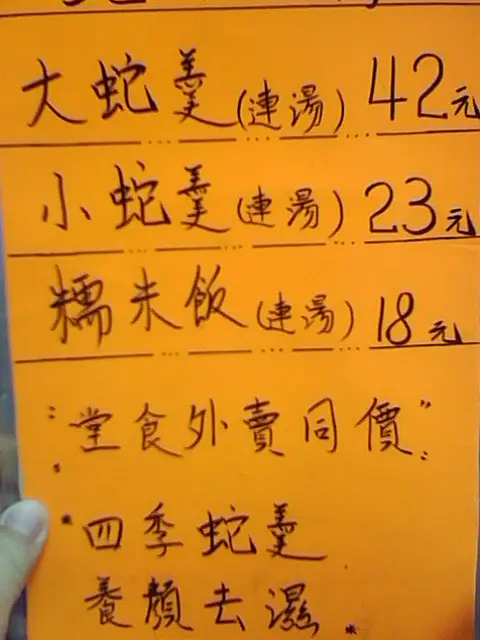 大蛇羹(連湯) 42元
小蛇羹(連湯) 23元
糯米飯(連湯) 18元
"堂食外賣同價"
*四季蛇羹
養顏去濕*